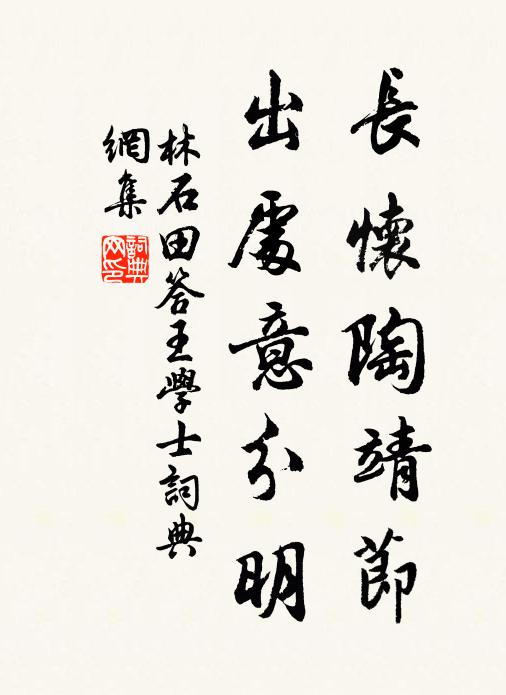 長懷陶靖節
出處意分明
林石田答王學士詞典
網集
詞典
网印